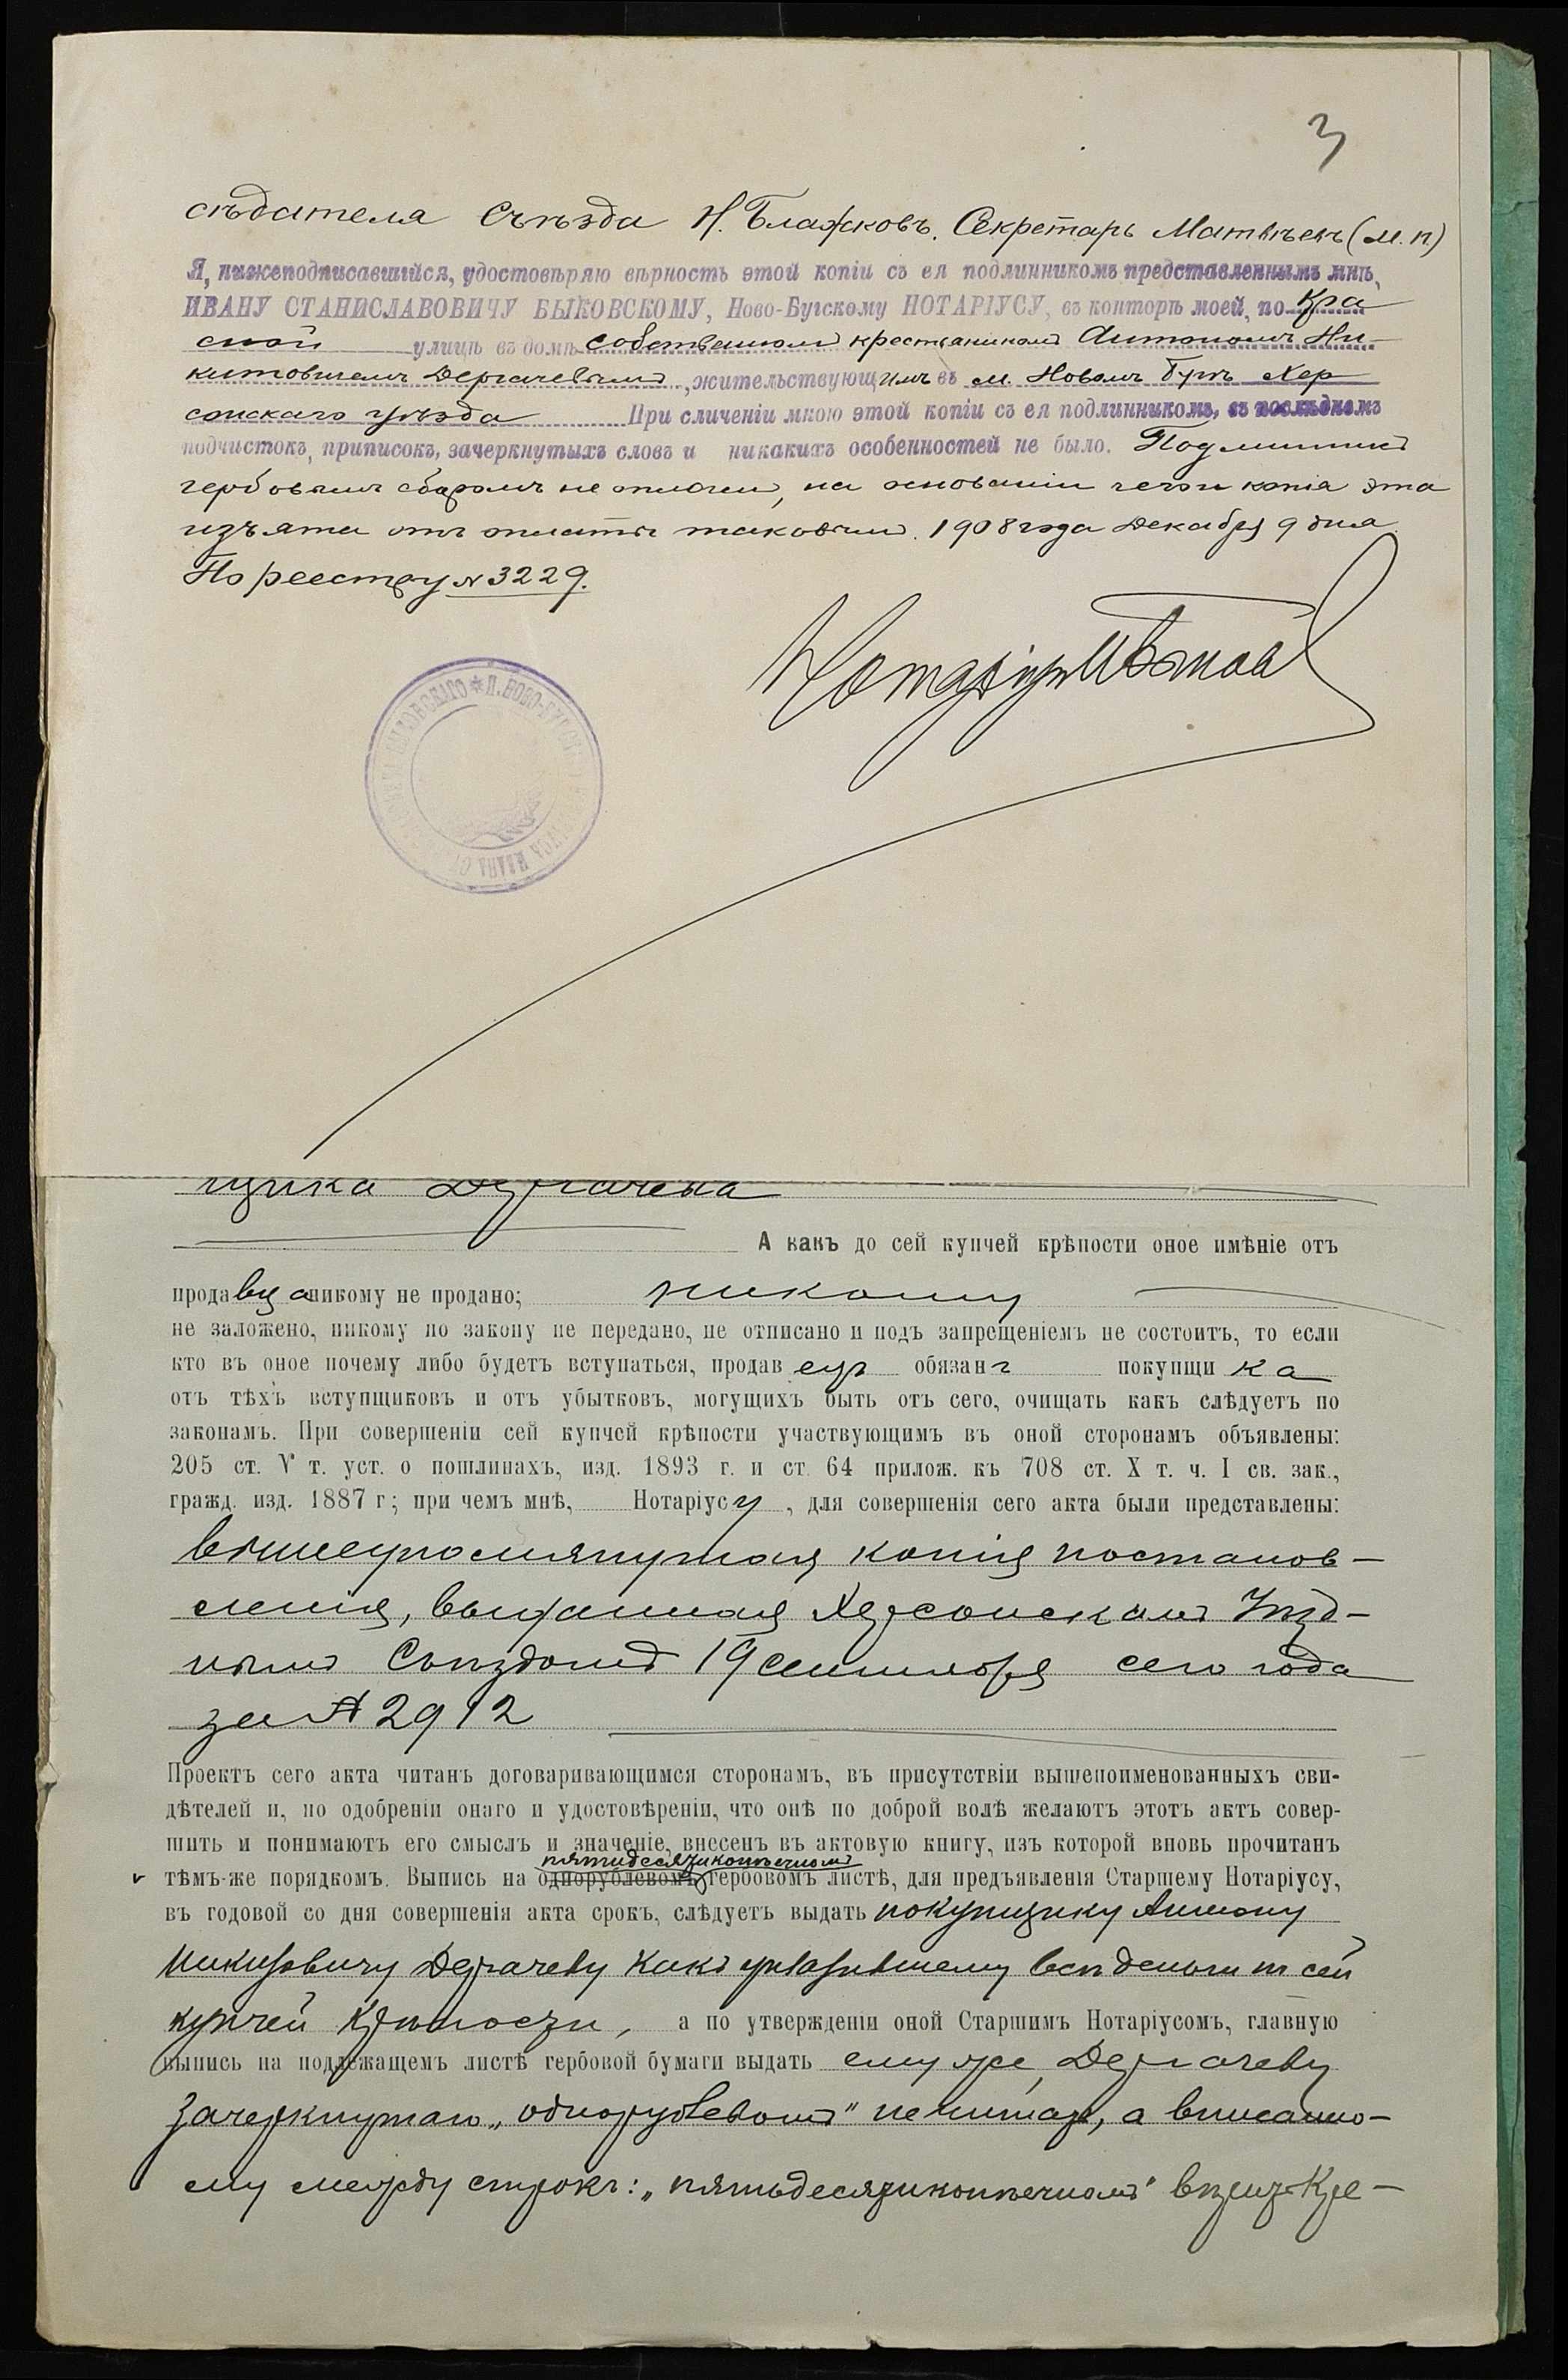 3
сѣдателя Съѣзда Н. Блажковъ. Секретарь Матвѣевъ (М. п)
Я, нижеподписавшійся, удостовѣряю вѣрность этой копіи съ ея подлинникомъ представленнымъ мнѣ,
ИВАНУ СТАНИСЛАВОВИЧУ БЫКОВСКОМУ, Ново-Бугскому НОТАРІУСУ, въ конторѣ моей, по Кра
сной улицѣ въ домѣ собственномъ крестьяниномъ Антономъ Ни-
китовичемъ Дергачевымъ, жительствующимъ въ м. Новомъ Бугѣ Хер
сонскаго уѣзда При сличеніи мною этой копіи съ ея подлинникомъ, въ послѣднемъ
подчистокъ, приписокъ, зачеркнутыхъ словъ и никакихъ особенностей не было. Подлинникъ
гербовымъ сборомъ не оплочен, на основаніи чего и копія эта
изъята отъ оплаты таковым. 1908 года Декабря 9 дня.
По реестру № 3229.
Нотаріусъ
щика Дергачева
А какъ до сей купчей крѣпости оное имѣніе отъ
продавца никому не продано; никому
не заложено, никому по закону не передано, не отписано и подъ запрещеніемъ не состоитъ, то если
кто въ оное почему либо будетъ вступаться, продавецъ обязанъ покупщика
отъ тѣхъ вступщиковъ и отъ убытковъ, могущихъ быть отъ сего, очищать какъ слѣдуетъ по
законамъ. При совершеніи сей купчей крѣпости участвующимъ въ оной сторонамъ объявлены:
205 ст. V т. уст. о пошлинахъ, изд. 1893 г. и ст. 64 прилож. къ 708 ст. X т. ч. I св. зак.,
гражд. изд. 1887 г; при чемъ мнѣ, Нотаріусу, для совершенія сего акта были представлены:
вышеупомянутая копія постанов-
ленія, выданная Херсонскимъ Уѣзд-
нымъ Съѣздомъ 19 сентября сего года
за № 2912
Проектъ сего акта читанъ договаривающимся сторонамъ, въ присутствіи вышепоименованныхъ сви-
дѣтелей и, по одобреніи онаго и удостовѣреніи, что онѣ по доброй волѣ желаютъ этотъ актъ совер-
шить и понимаютъ его смыслъ и значеніе, внесенъ въ актовую книгу, изъ которой вновь прочитанъ
пятидесятикопѣечномъ
тѣмъ-же порядкомъ. Выпись на однорублевомъ гербовомъ листѣ, для предъявленія Старшему Нотаріусу,
въ годовой со дня совершенія акта срокъ, слѣдуетъ выдать покупщику Антону
Никитовичу Дергачеву какъ уплатившему всѣ деньги по сей
купчей крѣпости, а по утвержденіи оной Старшимъ Нотаріусомъ, главную
выпись на подлежащемъ листѣ гербовой бумаги выдать ему же, Дергачеву
Зачеркнутаго „однорублевомъ" не читать, а вписанно-
му между строкъ: „пятьдесятикопѣечномъ"